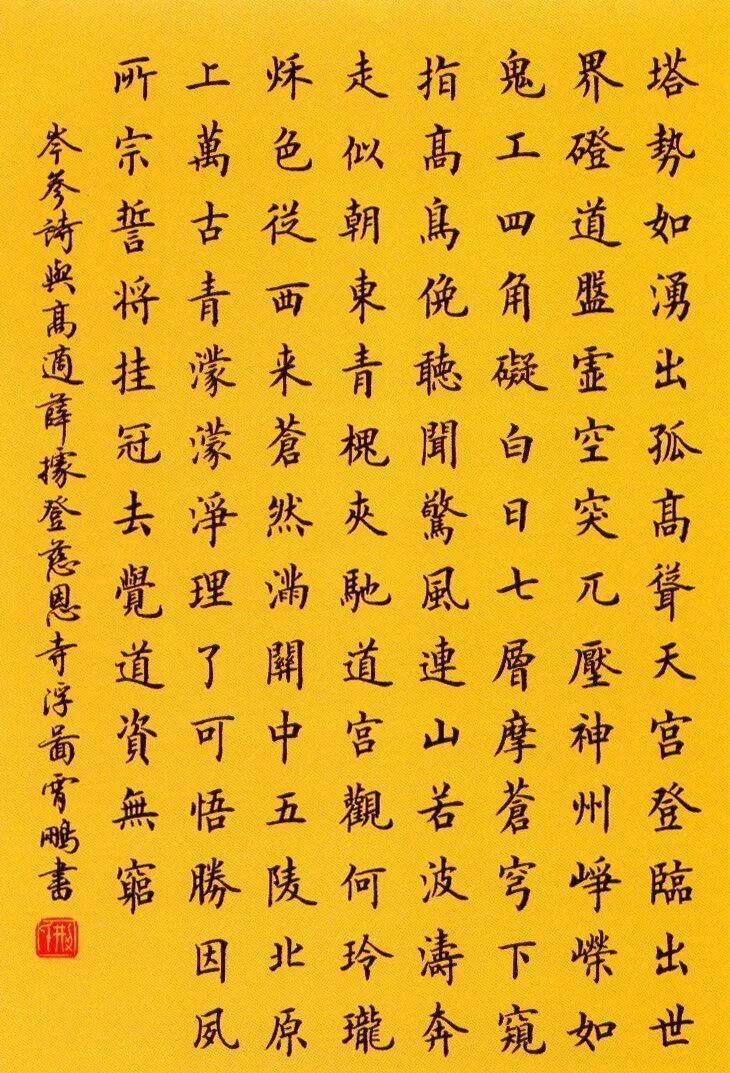 塔勢如湧出孤高聳天宮登臨出世
界磴道盤虛空突兀壓神州崢嶸如
鬼工四角礙白日七層摩蒼穹下窺
指高鳥俛聽聞驚風連山若波濤奔
走似朝東青槐夾馳道宮觀何玲瓏
秌色從西来蒼然滿關中五陵北原
上萬古青濛濛淨理了可悟勝因夙
所宗誓将挂冠去覺道資無窮
岑參詩與高適薛據登慈恩寺浮啚霄鵬書